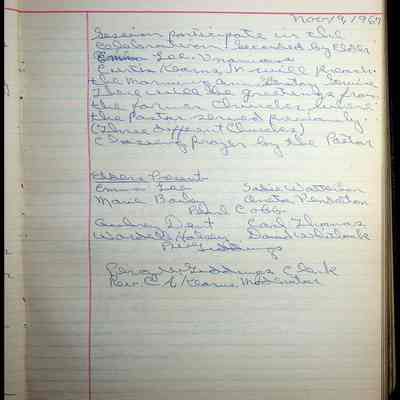 Nov 19, 1967
Session participate in the
celebration seconded by Elder
Emma Lee. Unanimous
Curtis Kearns Jr will preach
the morning am Sunday Service
There will be greetings from
the former Churches where
the Pastor served previously.
(Three different Churches)
Closing Prayer by the Pastor
Elders Present
Emma Lee Sadie Watterson
Marie Bailey Pemberton
Pearl Cobb
Audrey Dent Earl Thomas
Wardell David Whitlock
Percy Giddings
Leroy Giddings Clerk
Rev. C. H. Kearns Moderator